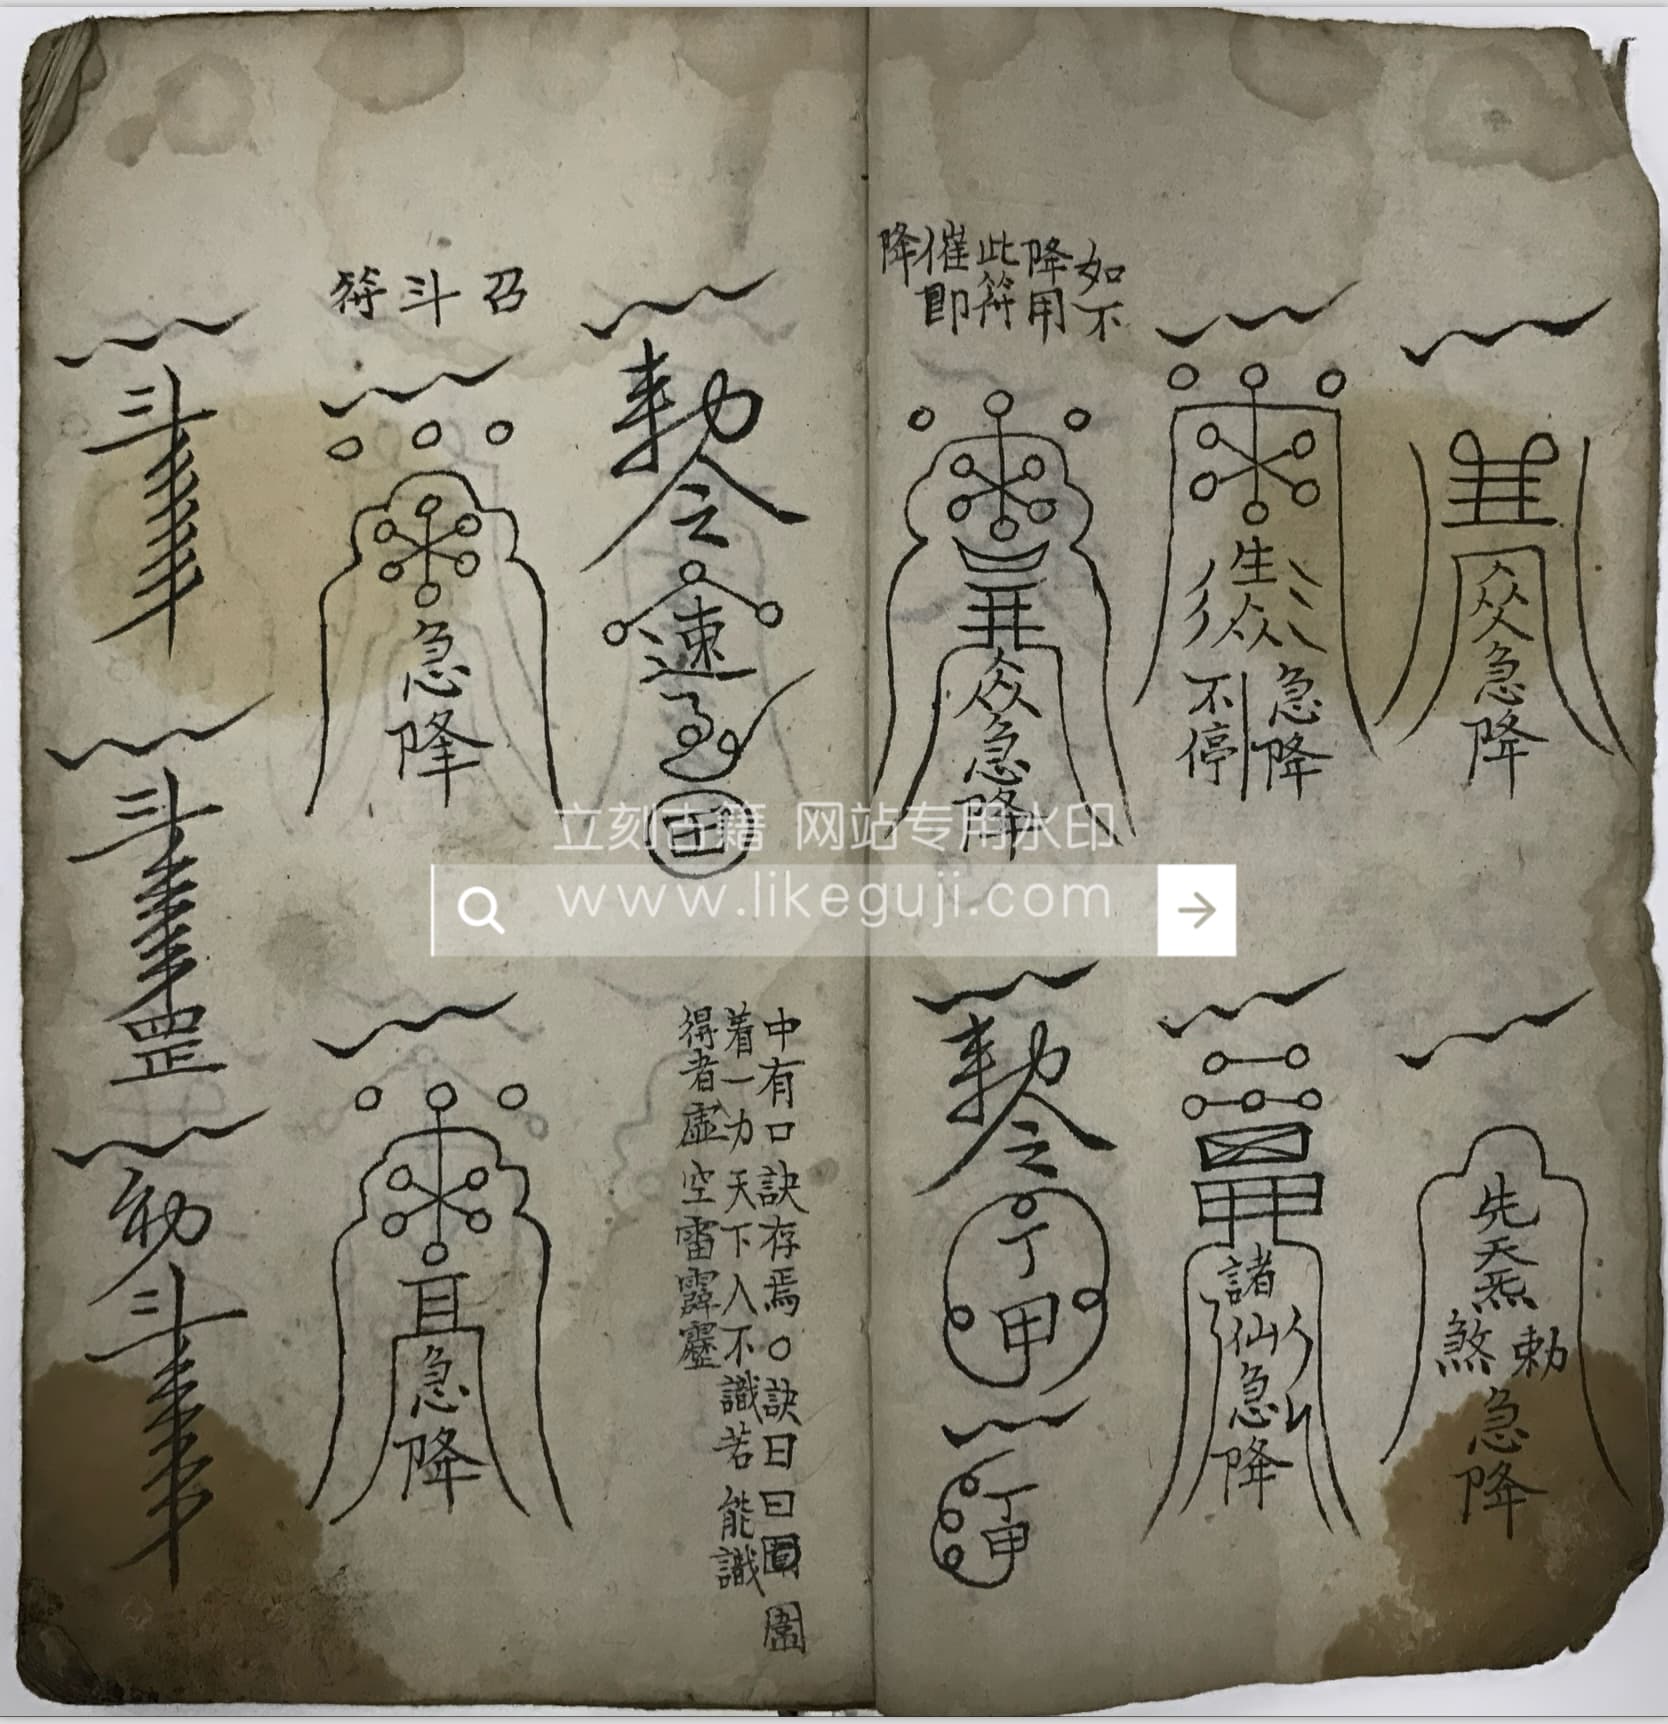 急降
先天炁
煞勅
急降
生
急降
不停
諸仙急降
如不
降用
此符
催即
降
急降
勅令
丁甲
丁甲
勅令
速
中有口訣存焉○訣曰曰圓圍
着一力天下人不識若能識
得者虛空雷霹靂
召斗符
急降
急降
斗
斗罡
勅斗
立刻古籍 网站专用水印
www.likeguji.com